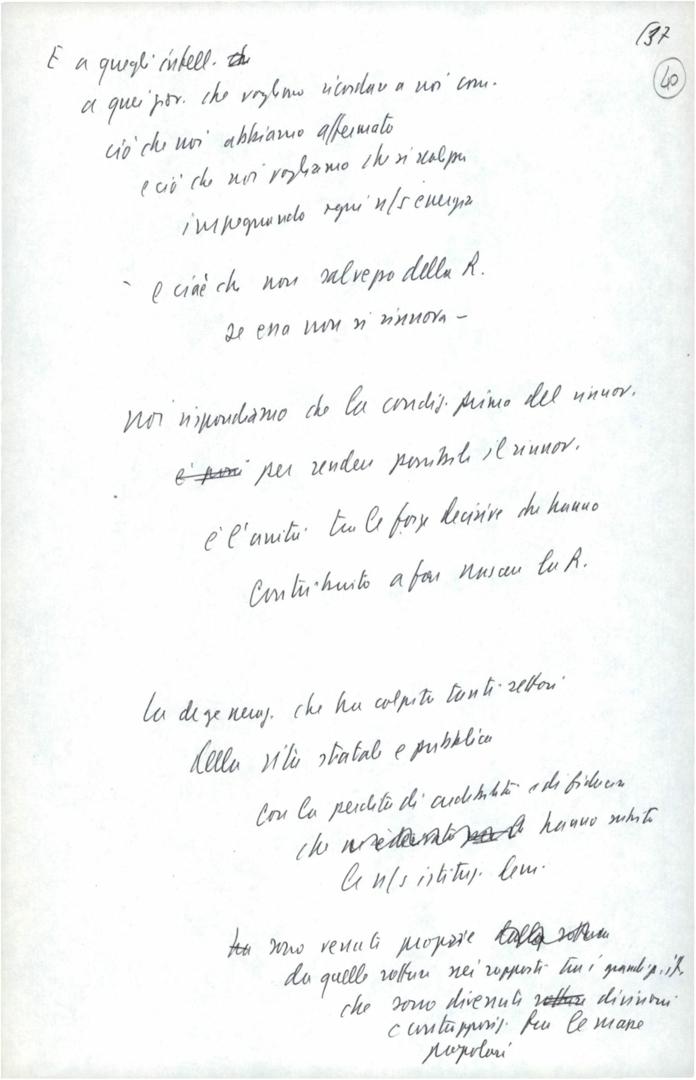 137
40
E a quegli intell.
a quei giov. che vogliono ricordare a noi com.
ciò che noi abbiamo affermato
e ciò che noi vogliamo che si salvi
impegnando ogni n/s energia
e cioè che non salveremo della R.
se essa non si rinnova –
noi rispondiamo che la condiz. prima del rinnov.
per rendere possibile il rinnov.
è l'unità tra le forze decisive che hanno
contribuito a far nascere la R.
la degeneraz. che ha colpito tanti settori
della vita statale e pubblica
con la perdita di credibilità e di fiducia
che hanno subito
le n/s istituz. dem.
sono venuti proprio
da quelle rotture nei rapporti tra i grandi p.
che sono divenuti divisioni
contrappos. tra le masse
popolari